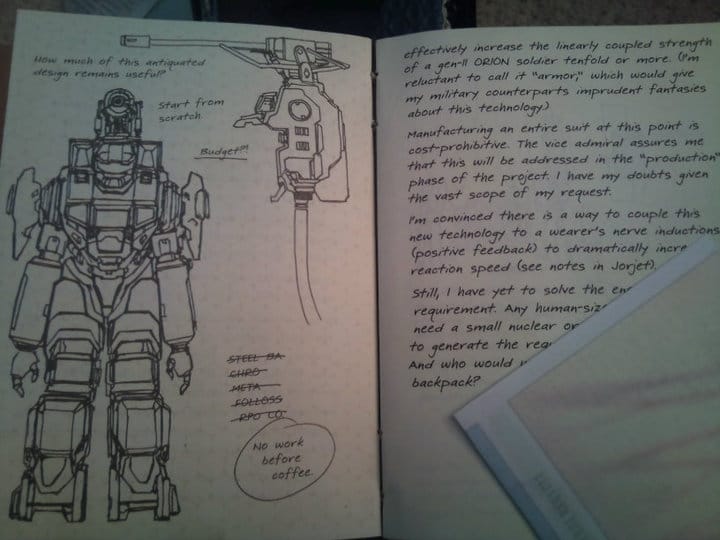 How much of this antiquated
design remains useful?
Start from
scratch
Budget?!
STEEL BA
CHRO
META
FOLLOSS
RPO CO.
No work
before
coffee
effectively increase the linearly coupled strength
of a gen-II ORION soldier tenfold or more. (I'm
reluctant to call it "armor," which would give
my military counterparts imprudent fantasies
about this technology.)
Manufacturing an entire suit at this point is
cost-prohibitive. The vice admiral assures me
that this will be addressed in the "production"
phase of the project. I have my doubts given
the vast scope of my request.
I'm convinced there is a way to couple this
new technology to a wearer's nerve inductions
(positive feedback) to dramatically incre
reaction speed (see notes in Jorjet).
Still, I have yet to solve the en
requirement. Any human-siz
need a small nuclear or
to generate the requ
And who would w
backpack?